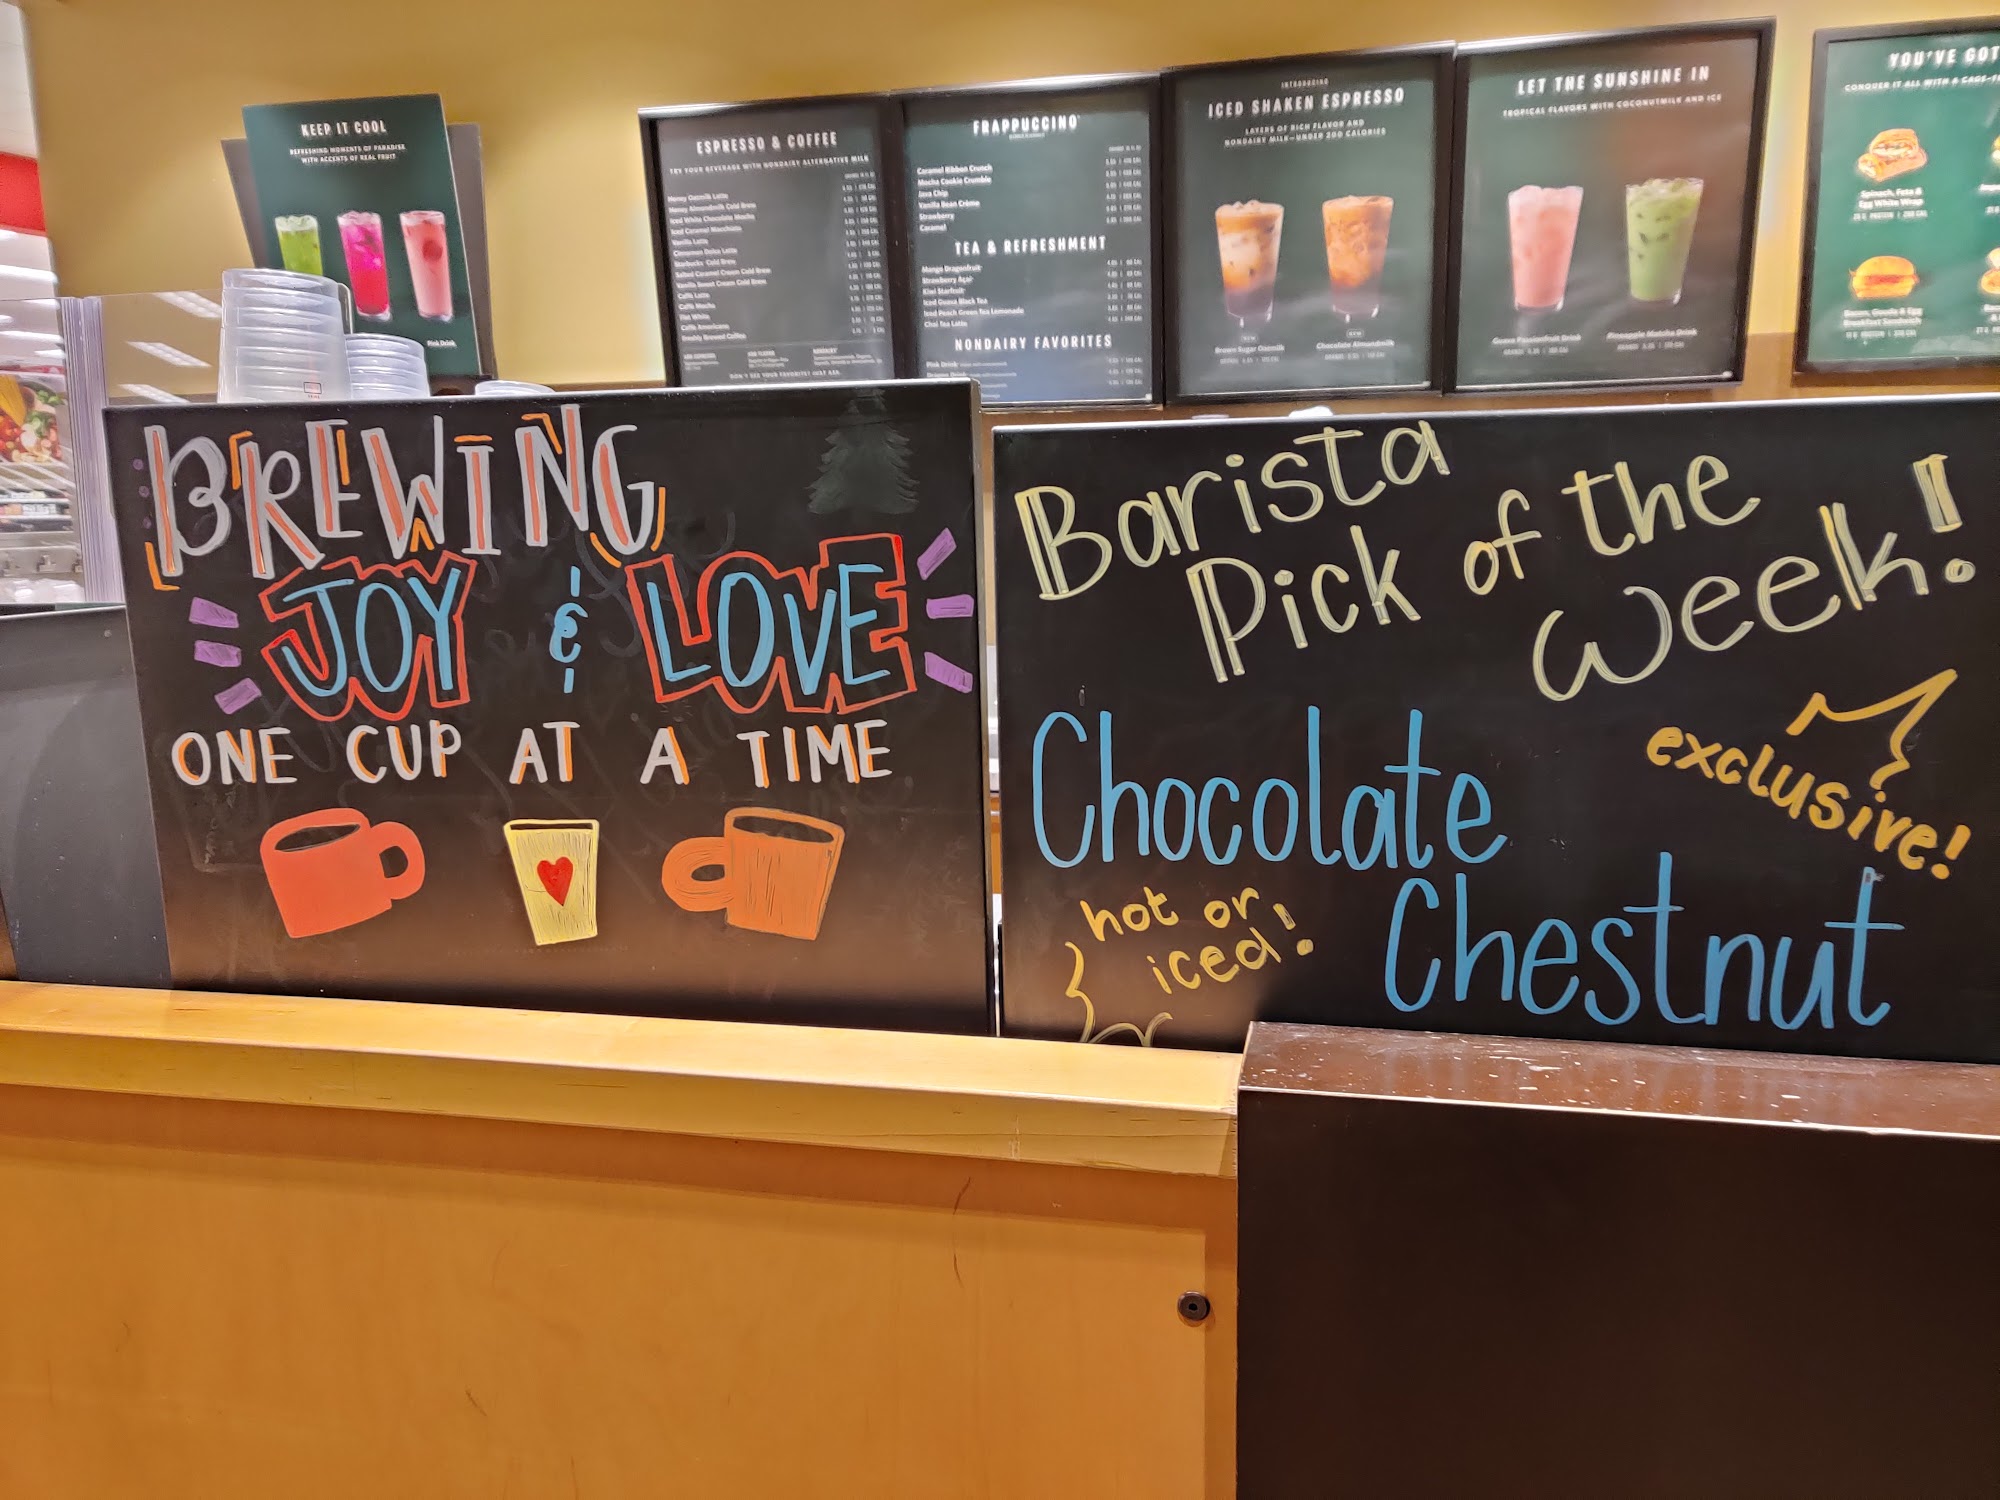 KEEP IT COOL
REFRESHING MOMENTS OF PARADISE
WITH ACCENTS OF REAL FRUIT
Pink Drink
ESPRESSO & COFFEE
TRY YOUR BEVERAGE WITH NONDAIRY ALTERNATIVE MILK
Honey Oatmilk Latte
Honey Almondmilk Cold Brew
Iced White Chocolate Mocha
Iced Caramel Macchiato
Vanilla Latte
Cinnamon Dolce Latte
Starbucks Cold Brew
Salted Caramel Cream Cold Brew
Vanilla Sweet Cream Cold Brew
Caffè Latte
Caffè Mocha
Flat White
Caffè Americano
Freshly Brewed Coffee
DON'T SEE YOUR FAVORITE? JUST ASK.
FRAPPUCCINO
Caramel Ribbon Crunch
Mocha Cookie Crumble
Java Chip
Vanilla Bean Crème
Strawberry
Caramel
TEA & REFRESHMENT
Mango Dragonfruit
Strawberry Açaí
Kiwi Starfruit
Iced Guava Black Tea
Iced Peach Green Tea Lemonade
Chai Tea Latte
NONDAIRY FAVORITES
Pink Drink
Dragon Drink
INTRODUCING
ICED SHAKEN ESPRESSO
LAYERS OF RICH FLAVOR AND
NONDAIRY MILK—UNDER 200 CALORIES
NEW
Brown Sugar Oatmilk
NEW
Chocolate Almondmilk
LET THE SUNSHINE IN
TROPICAL FLAVORS WITH COCONUTMILK AND ICE
Guava Passionfruit Drink
Pineapple Matcha Drink
YOU'VE GOT
CONQUER IT ALL WITH A CAGE-F
Spinach, Feta &
Egg White Wrap
Bacon, Gouda & Egg
Breakfast Sandwich
BREWING
JOY & LOVE
ONE CUP AT A TIME
Barista
Pick of the
week!
exclusive!
Chocolate
Chestnut
hot or
iced!